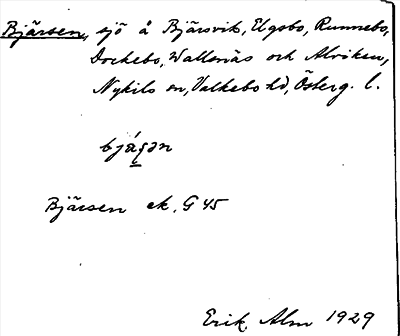 Bjärsen, sjö å Bjärsvik, Elgsbo, Runnebo,
Dockebo, Wallsnäs och Alviken,
Nykils sn, Valkebo hd, Österg. l.
Bjärsen ek. G 45
Erik Alm 1929